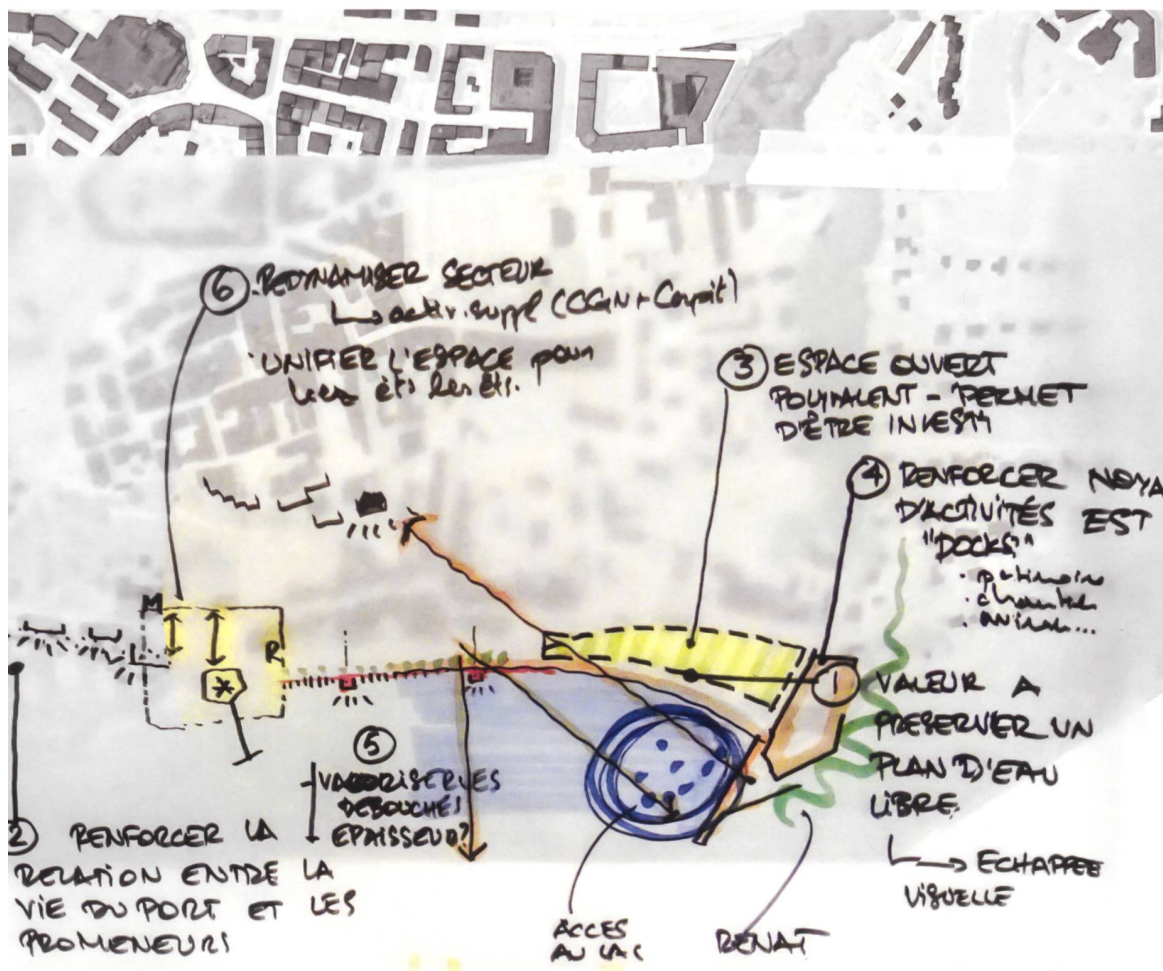 ⑥ REDYNAMISER SECTEUR
↳ activ. suppl (CGN + Conpit)
UNIFIER L'ESPACE pour
les
③ ESPACE OUVERT
POLYVALENT - PERMET
D'ÊTRE INVESTI
④ RENFORCER NOYA
D'ACTIVITÉS EST
"DOCKS"
• patrimoine
• chantier
M
R
*
① VALEUR A
PRESERVER UN
PLAN D'EAU
LIBRE
↳ ECHAPPEE
VISUELLE
⑤
VALORISER LES
DEBOUCHÉS
EPAISSEUR?
② RENFORCER LA
RELATION ENTRE LA
VIE DU PORT ET LES
PROMENEURS
ACCES
AU LAC
RENAT